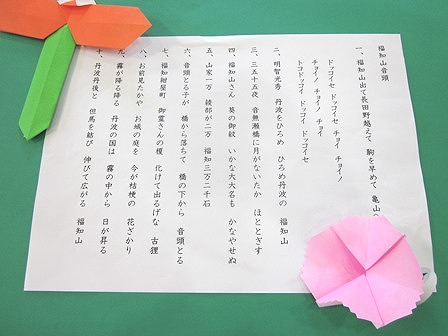 福知山音頭
一、福知山出て長田野越えて 駒を早めて 亀山
ドッコイセ ドッコイセ チョイ チョイ チョイノ
チョイノ チョイノ チョイ チョイ
トコドッコイ ドッコイ ドッコイセ
二、明智光秀 丹波をひろめ ひろめ丹波の 福知山
三、三五十五夜 音無瀬橋に月がないたか ほととぎす
四、福知山さん 葵の御紋 いかな大大名も かなやせぬ
五、山家一万 綾部が二万 福知三万二千石
六、音頭とる子が 橋から落ちて 橋の下から 音頭とる
七、福知紺屋町 御霊さんの榎 化けて出るげな 古狸
八、お前見たかや お城の庭を 今が桔梗の 花ざかり
九、霧が降る降る 丹波の国は 霧の中から 日が昇る
十、丹波丹後と 但馬を結び 伸びて広がる 福知山